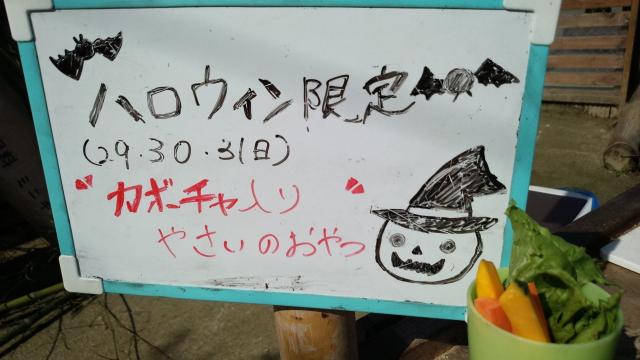 ハロウィン限定
(29.30.31(日)
"カボーチャ入り"
やさいのおやつ